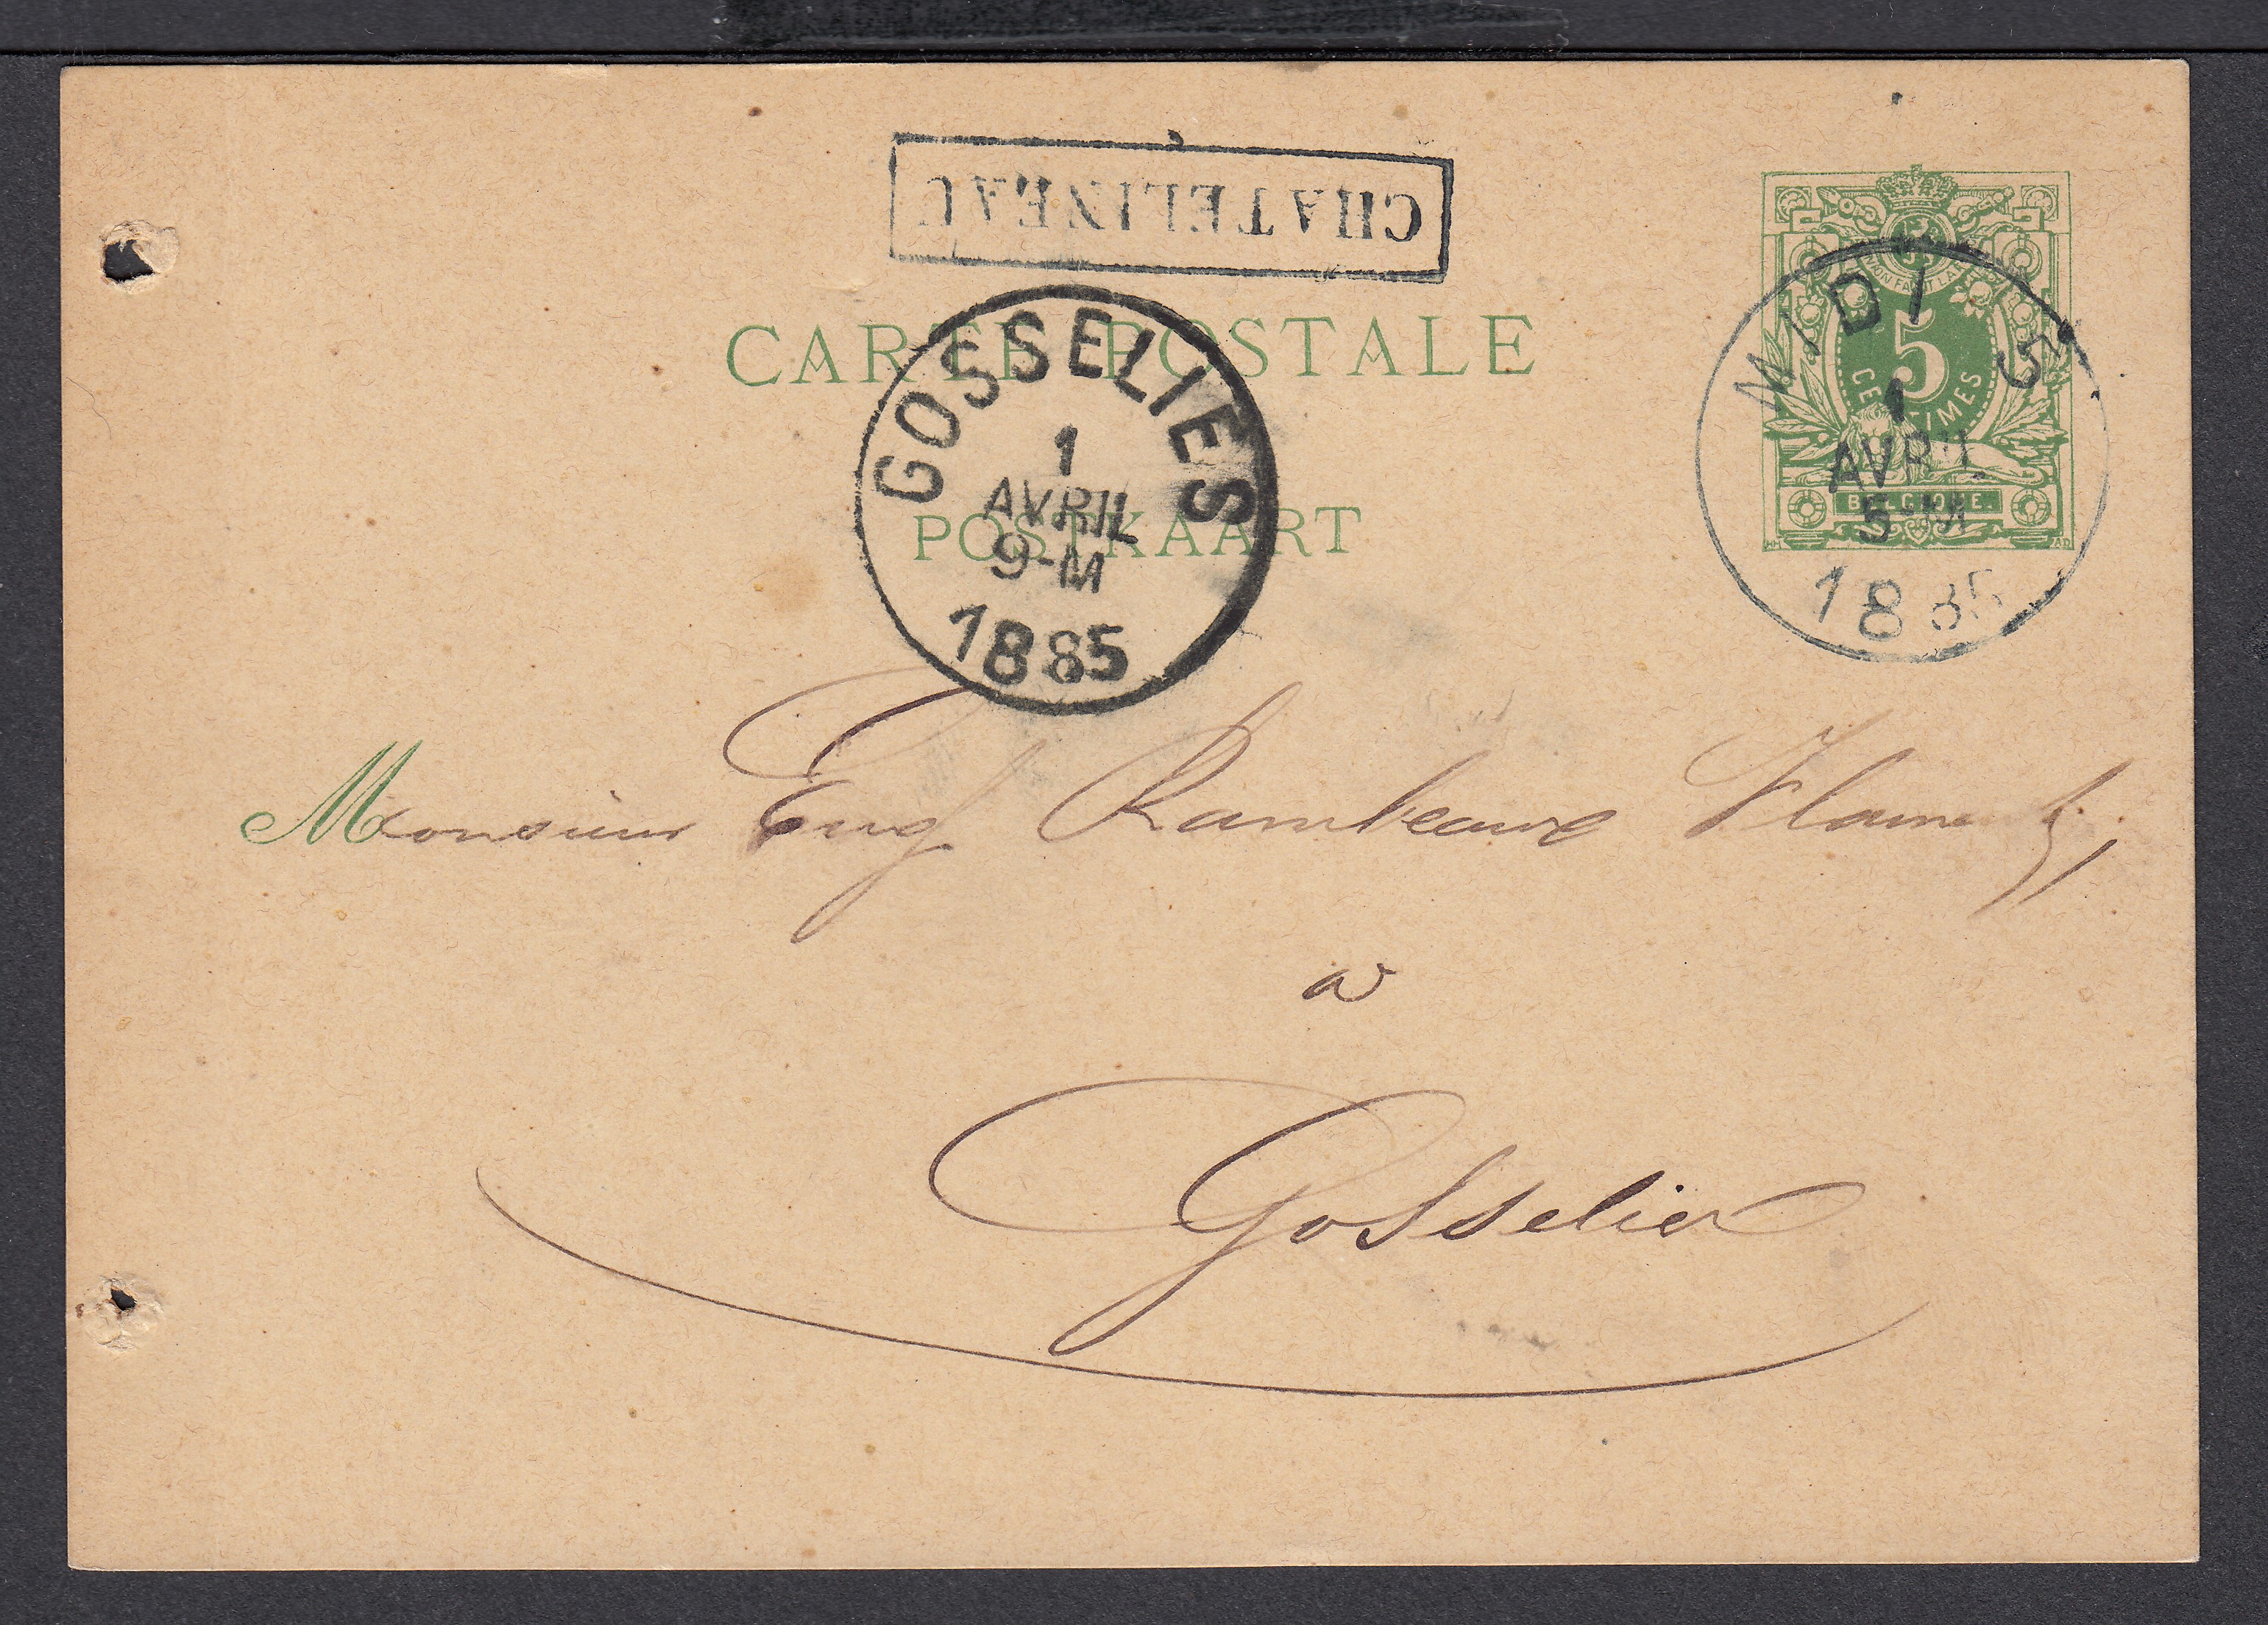 CHATELINEAU
CARTE POSTALE
POSTKAART
GOSSELIES
1
AVRIL
9-M
1885
5
CENTIMES
BELGIQUE
MIDI 5
1
AVRIL
5-M
1885
Monsieur Eug Rambeaux
a
Gosselies